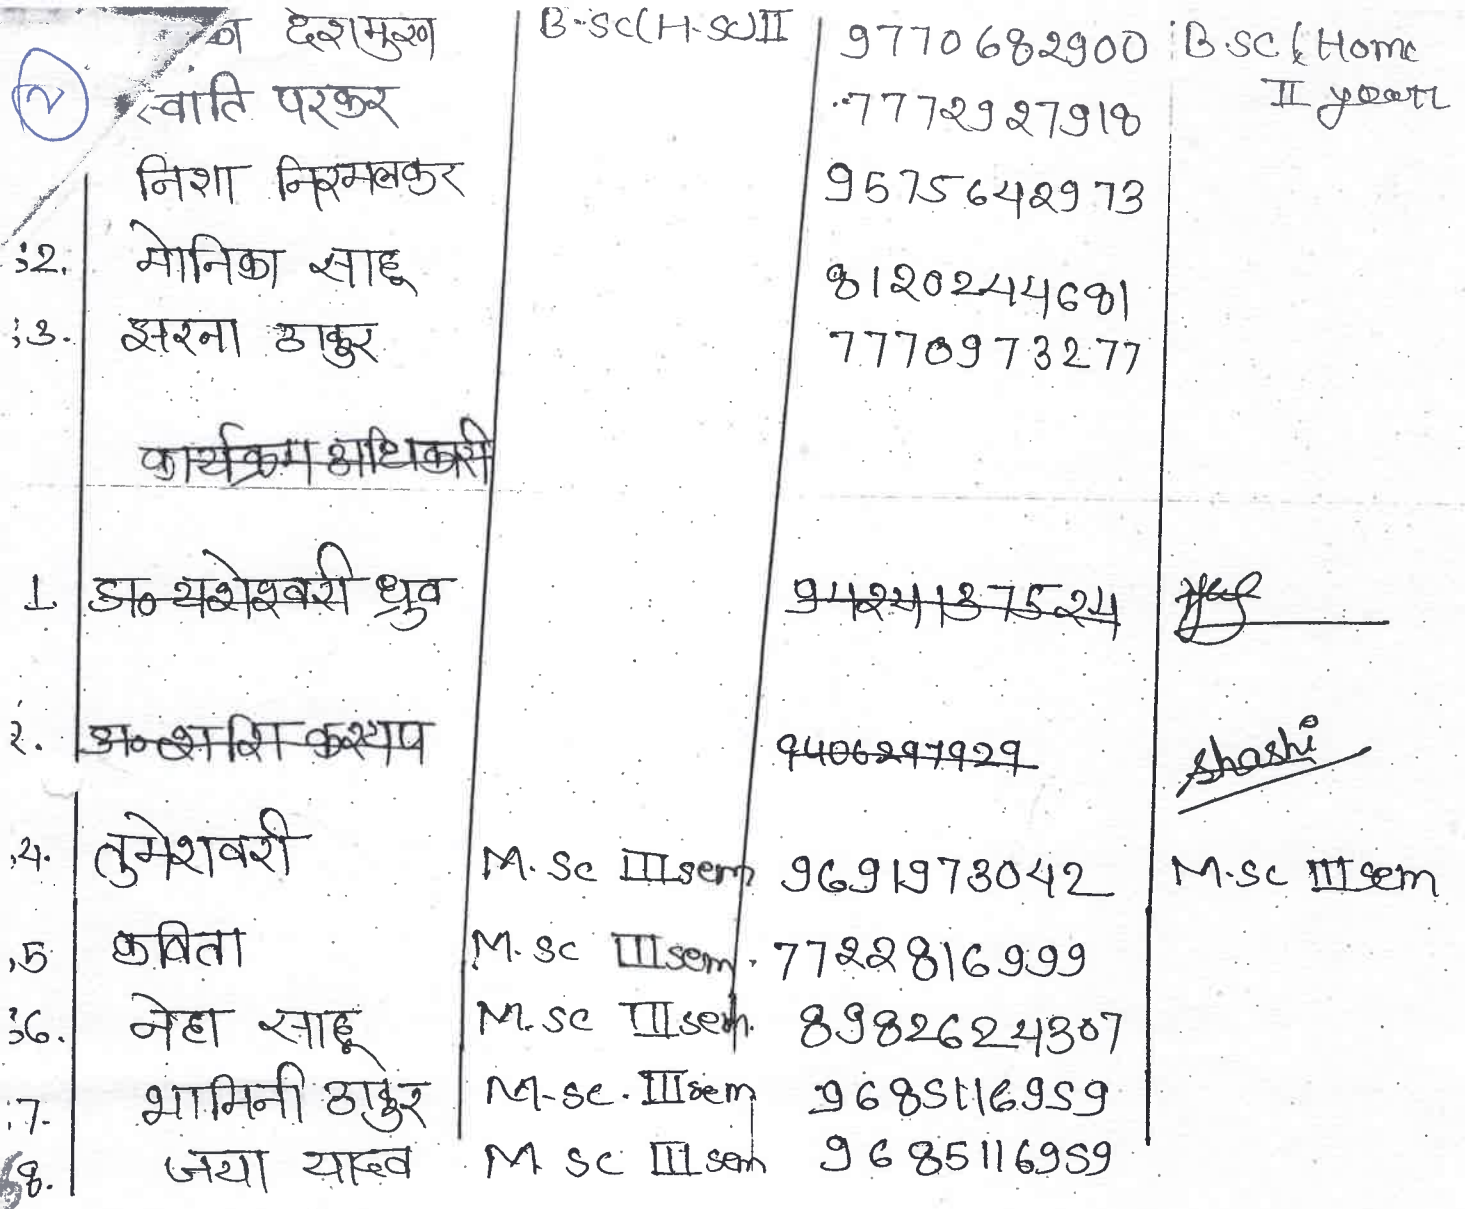 देशमुख B-SC(H-SC)II 9770682900 B.SC (Home
२ स्वाति परकर 7772927918 II year
निशा निरमलकर 9575642973
32. मोनिका साहू 8120244681
33. झरना ठाकुर 7770973277
कार्यक्रम अधिकारी
1 डा० यशेश्वरी ध्रुव 9424137524
२. शशि कश्यप 9406297929 Shashi
34. तुमेशवरी M.Sc III sem 9691973042 M.SC III sem
35 कविता M.SC III sem. 7722816999
36. नेहा साहू M.SC III sem. 8982624307
37. भामिनी ठाकुर M-SC. III sem 9685116959
38. जया यादव M SC III sem 9685116959